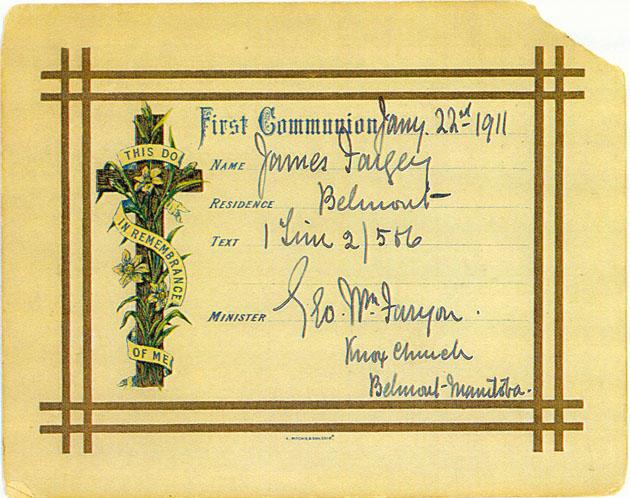 First Communion Jany. 22nd 1911
THIS DO
NAME James Fargey
RESIDENCE Belmont
IN REMEMBRANCE
TEXT 1 Tim 2/5&6
MINISTER Geo. Wm Faryon.
OF ME
Knox Church
Belmont-Manitoba.